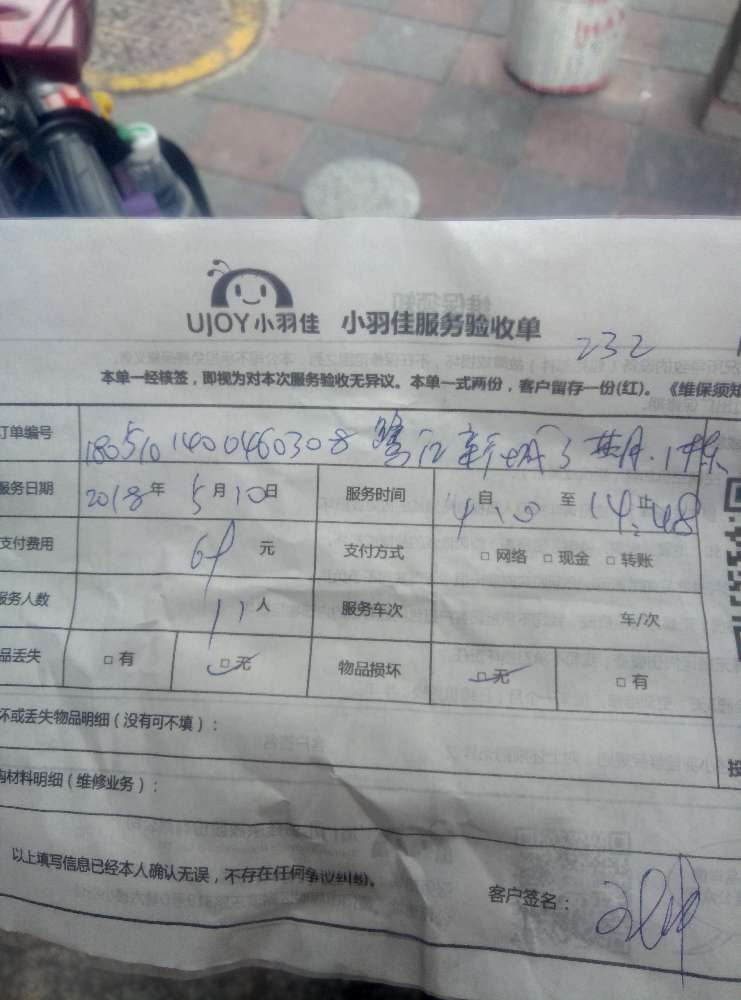 UJOY小羽佳 小羽佳服务验收单
232
本单一经核签，即视为对本次服务验收无异议。本单一式两份，客户留存一份(红)。《维保须知
订单编号 1805101400460308 鹭江新城
服务日期 2018年 5月10日 服务时间 自 至 14:48止
支付费用 元 支付方式 □网络 □现金 □转账
服务人数 人 服务车次 车/次
品丢失 □有 □无 物品损坏 □无 □有
坏或丢失物品明细（没有可不填）：
购材料明细（维修业务）：
以上填写信息已经本人确认无误，不存在任何争议纠纷。
客户签名：